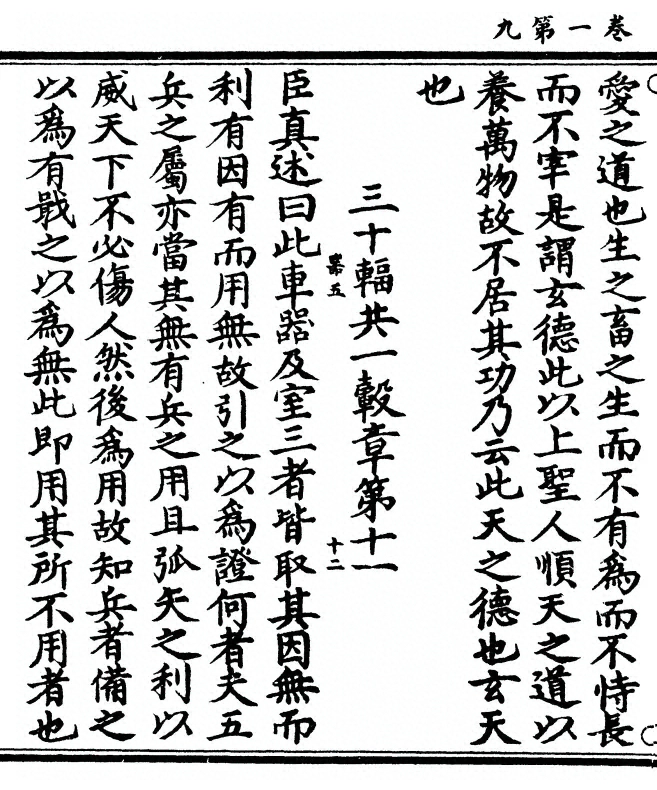 卷一第九
愛之道也生之畜之生而不有為而不恃長
而不宰是謂玄德此以上聖人順天之道以
養萬物故不居其功乃云此天之德也玄天
也
三十輻共一轂章第十一
羃五
十二
臣真述曰此車器及室三者皆取其因無而
利有因有而用無故引之以為證何者夫五
兵之屬亦當其無有兵之用且弧矢之利以
威天下不必傷人然後為用故知兵者備之
以為有戢之以為無此即用其所不用者也